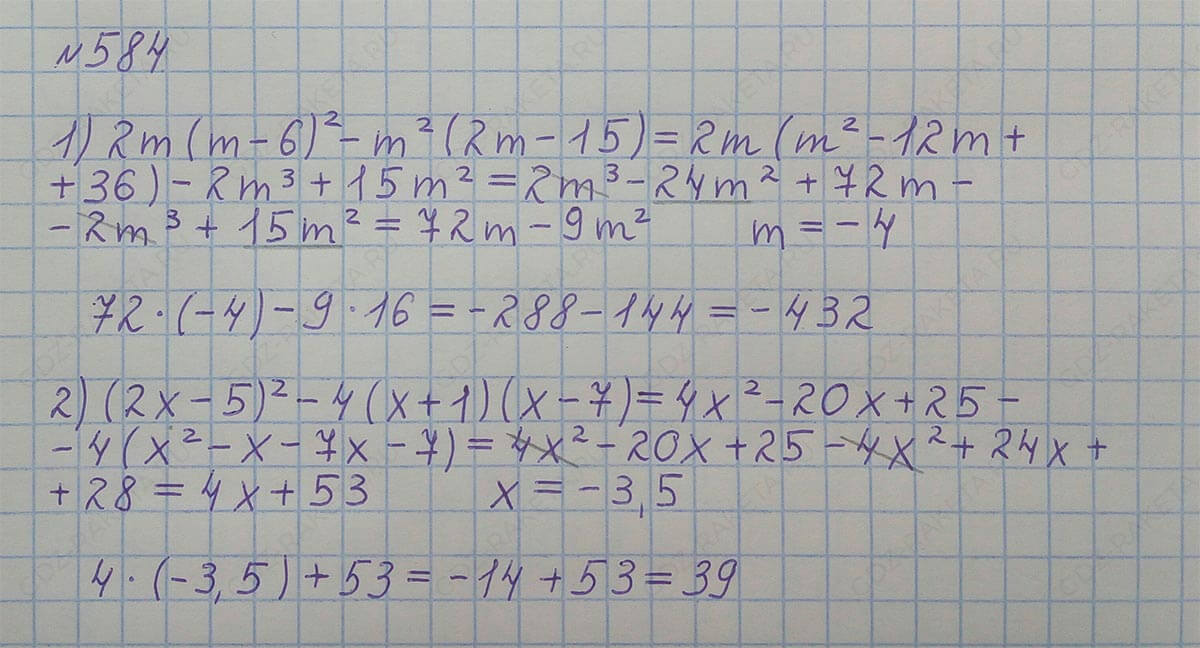 №584
1) 2m(m-6)²-m²(2m-15)=2m(m²-12m+
+36)-2m³+15m²=2m³-24m²+72m-
-2m³+15m²=72m-9m² m=-4
72·(-4)-9·16=-288-144=-432
2)(2x-5)²-4(x+1)(x-7)=4x²-20x+25-
-4(x²-x-7x-7)=4x²-20x+25-4x²+24x+
+28=4x+53 x=-3,5
4·(-3,5)+53=-14+53=39
GDZ-RAKETA.RU